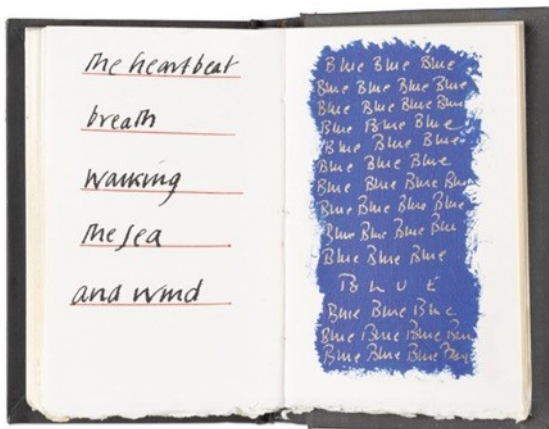 The heartbeat
breath
walking
the sea
and wind
Blue Blue Blue
Blue Blue Blue Blue
Blue Blue Blue Blue
Blue Blue Blue
Blue Blue Blue
Blue Blue Blue
Blue Blue Blue Blue
Blue Blue Blue Blue
Blue Blue Blue Blue
Blue Blue Blue
B L U E
Blue Blue Blue
Blue Blue Blue Blue
Blue Blue Blue Blue